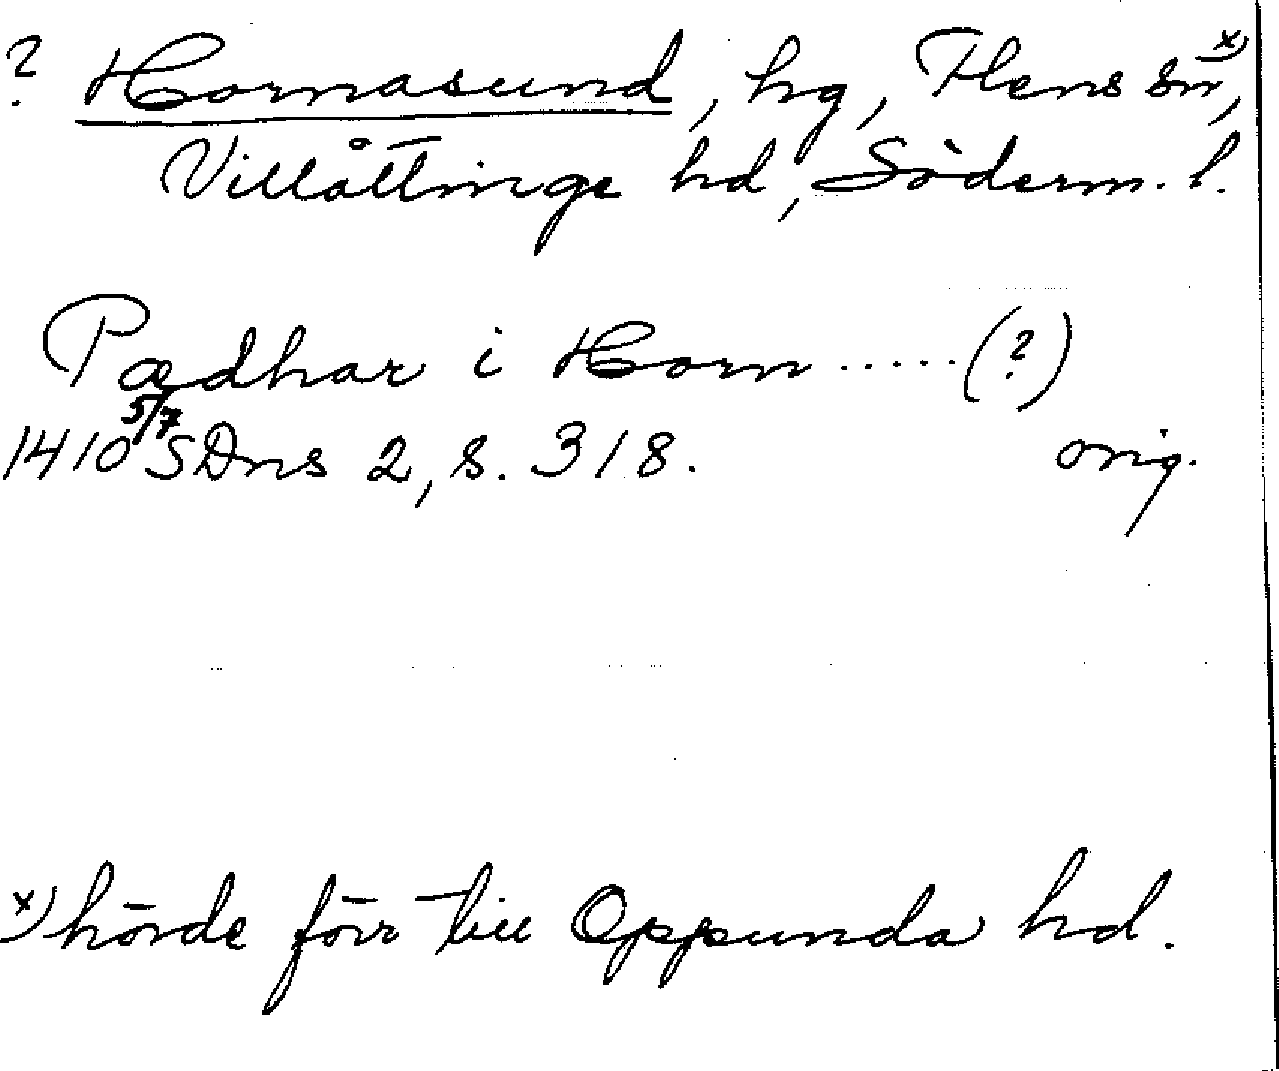 ? Hornasund, hg, Flens sn x),
Villåttinge hd, Söderm. l.
Pædhar i Horn.....(?)
1410 5/7 SDns 2, s. 318. orig.
x) hörde förr till Oppunda hd.